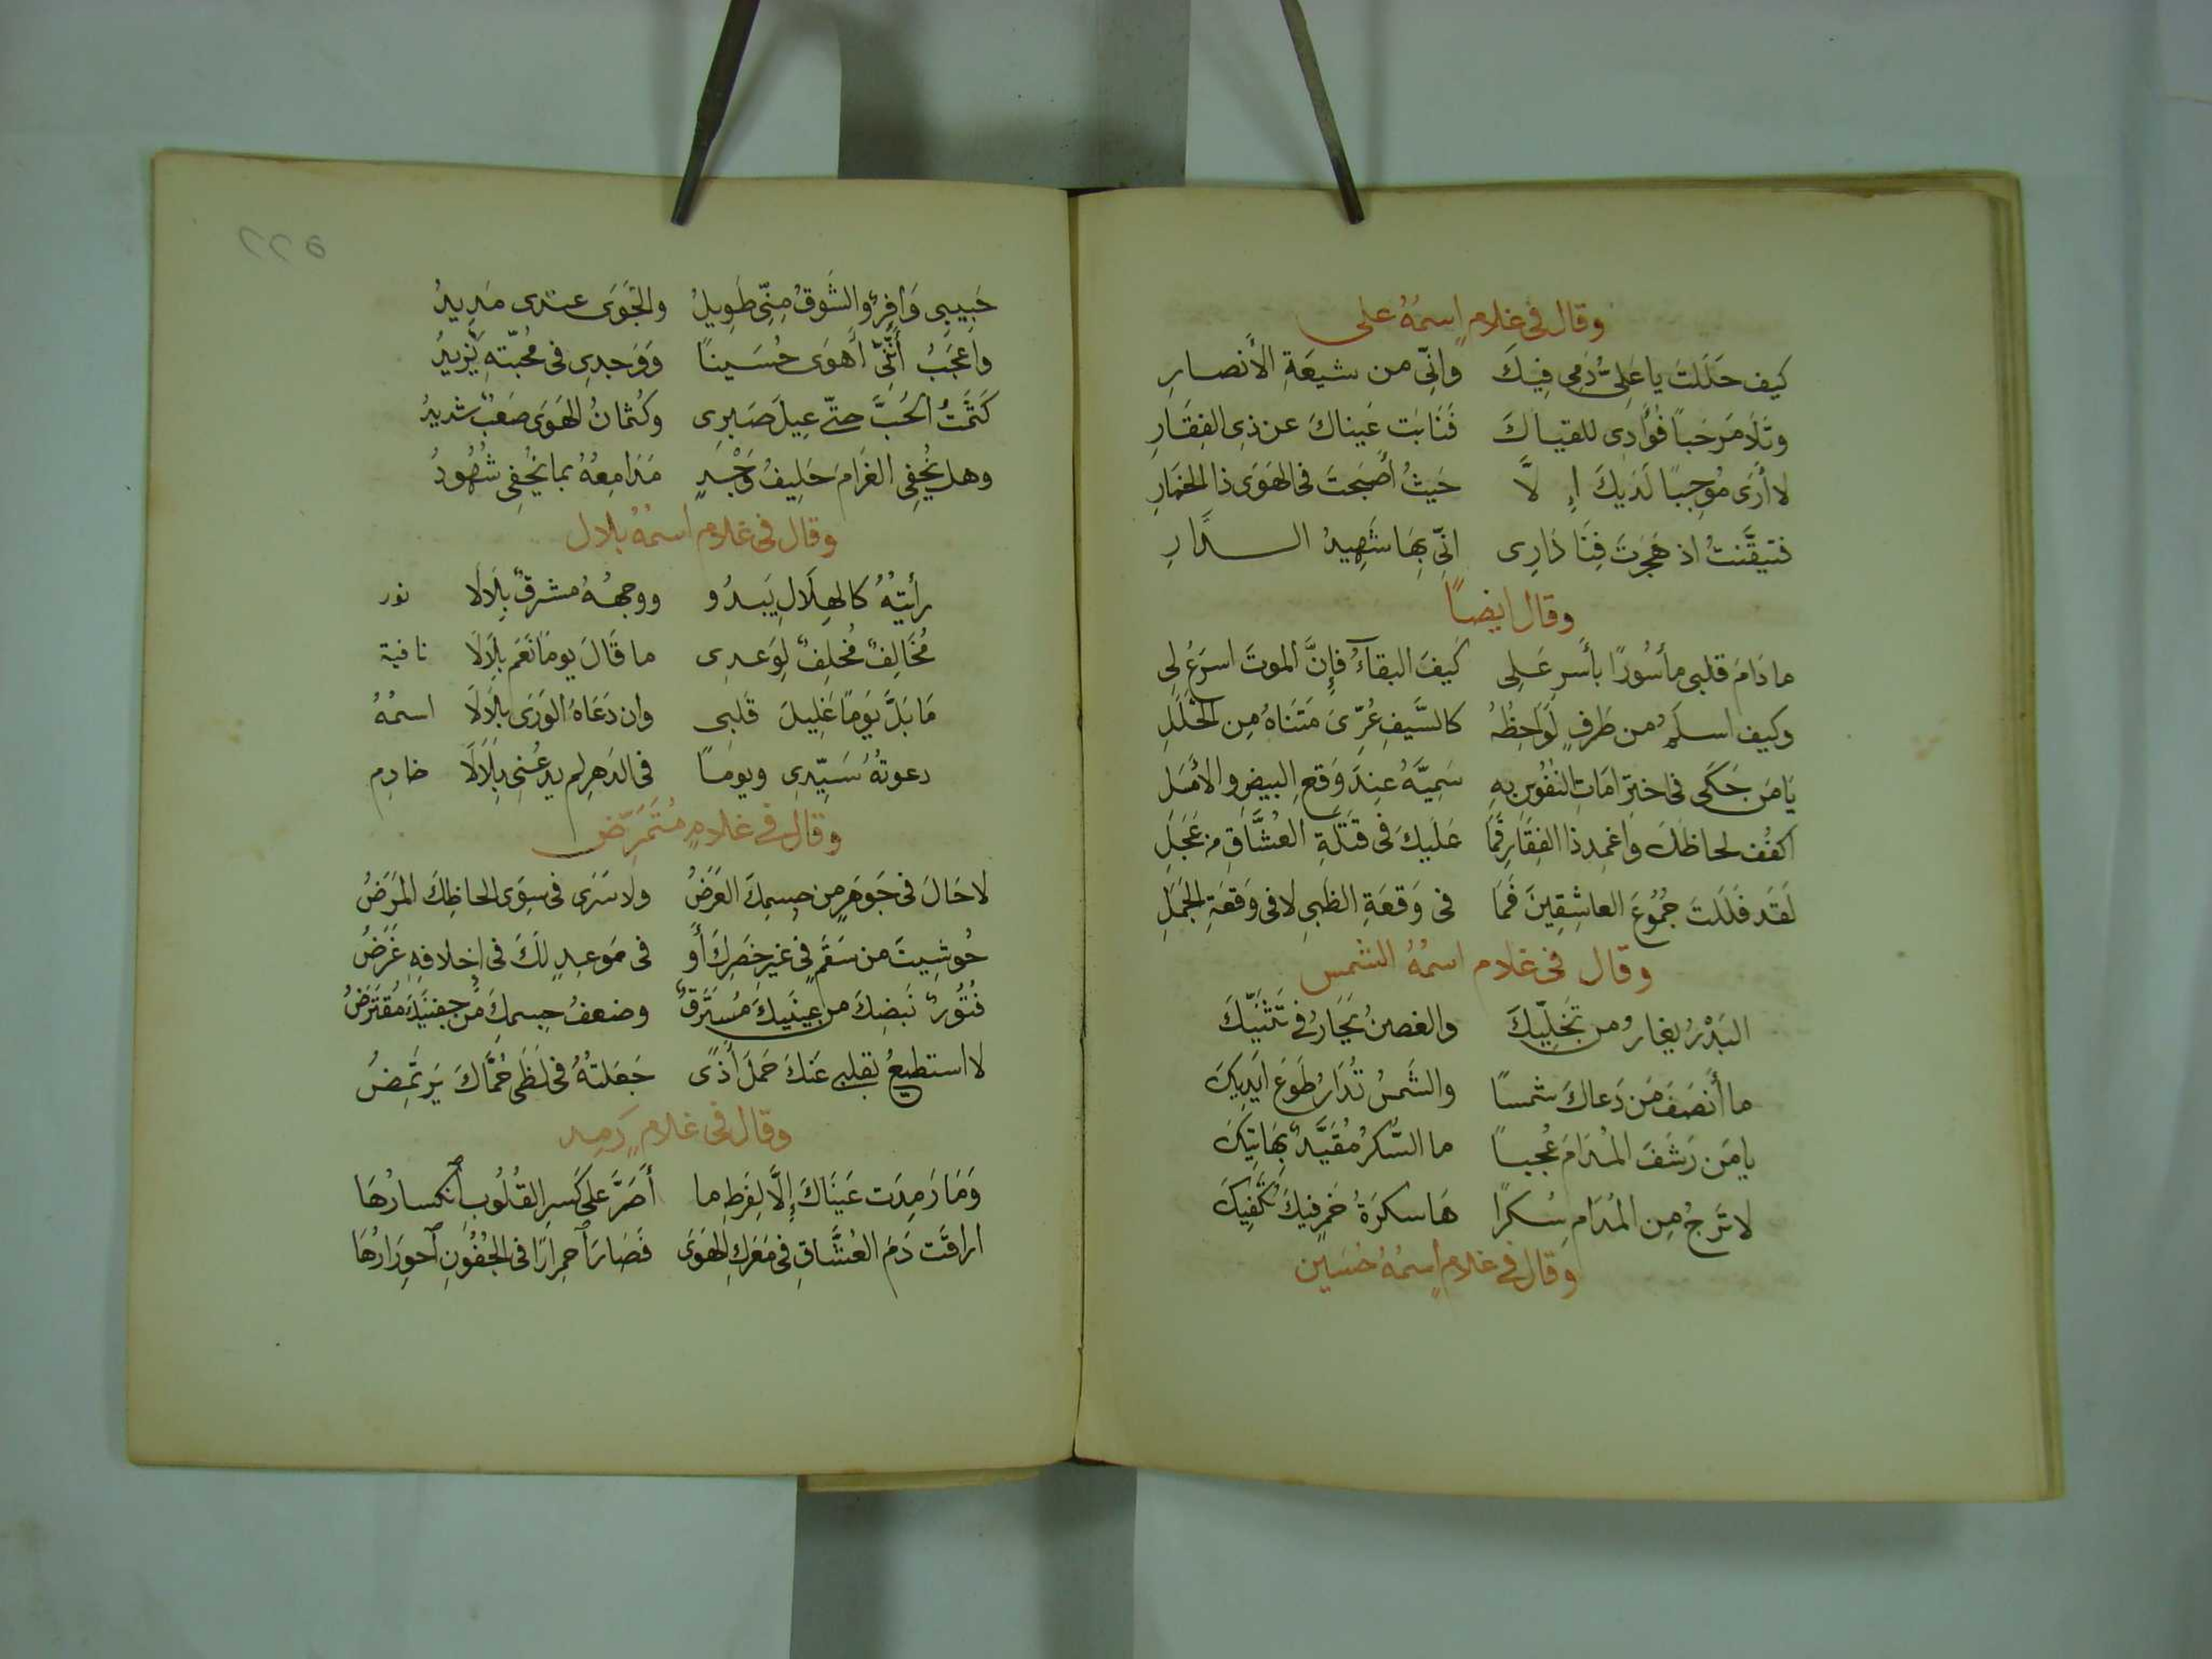 وقال في غلامٍ اسمُهُ على
كيف حَلَلتَ يا عَلِىُّ دَمِى فِيكَ وانِّى من شيعَةِ الأنصارِ
وتَلَا مَرحَباً فُؤَادِى للقياكَ فَنَابَت عَيناكَ عن ذِى الفِقَارِ
لا أرَى مُوجِبًا لَدَيكَ إِلَّا حَيثُ أَصبَحتَ فى الهَوَى ذا الخمَارِ
فتيقَّنتُ اذ هَجَرتَ فِنَا دَارِى انِّى بِهَا شَهِيدُ الدَّارِ
وقال ايضاً
ما دَامَ قلبى مأسُورًا بأَسرِ عَلِى كَيفَ البقاءُ فإنَّ الموتَ اسرَعُ لِى
وكيف اسلَمُ من طَرفٍ لَوَاحِظُهُ كالسَّيفِ عُرِّىَ مَتنَاهُ مِن الخَلَلِ
يَا مَن حَكَى فى اختِرَامَاتِ النُفُوسِ بِهِ سَمِيَّهُ عِندَ وَقعِ البيضِ والأَسَلِ
اكفُف لحاظَكَ وَاغمِد ذا الفِقَارِ فَمَا عَلَيكَ فى قَتلَةِ العُشَّاقِ من عَجَلِ
لَقَد فَلَلتَ جُمُوعَ العاشِقِينَ فَمَا فى وَقعَةِ الظَبىِ لا فى وَقعَةِ الجَمَلِ
وقال فى غلام اسمُهُ الشمس
البَدْرُ يغارُ من تَجَلِّيكَ والغصنُ يَحَارُ فى تَثَنِّيكَ
ما أَنصَفَ مَن دَعاكَ شمسًا والشَمسُ تُدَارُ طَوعَ ايَدِيكَ
يا مَن رَشَفَ المُدَامَ عُجباً ما السُّكرُ مُقَيَّدٌ بِهَاتِيكَ
لا تَرجُ مِن المُدَامِ سُكرًا هَا سكرَةُ خَمرِ فيكَ تُكفِيكَ
وقال فى غلامٍ اسمُهُ حُسَين
٥٢٢
حَبِيبِى وَافِرٌ والشَوقُ مِنِّى طَوِيلُ والجَوَى عندى مَدِيدُ
واعجَبُ أَنَّنِى أَهوَى حُسَينًا وَوَجدِى فى محُبّتهِ يَزيدُ
كَتَمتُ الحُبَّ حتّى عِيلَ صَبرِى وكُتمانُ الهَوَى صَعبٌ شديدُ
وهل يُخفِى الغَرَامَ حَلِيفُ وَجْدٍ مَدَامِعُهُ بما يُخفِى شُهُودُ
وقال فى غلام اسمُهُ بلال
رأيتُهُ كالهِلَالِ يَبدُو ووجهُهُ مشرقٌ بِلَالَا نور
مُخَالِفٌ مُخلِفٌ لِوَعدِى ما قَالَ يومًا نَعَم بِلَالَا نافية
مَا بَلَّ يَومًا غَلِيلَ قَلبى وان دَعَاهُ الوَرَى بِلَالَا اسمُهُ
دعوتُهُ سَيِّدِى ويومًا فى الدَهرِ لم يدعُنِى بِلَالَا خادِم
وقال فى غلامٍ مُتَمَرِّض
لا حَالَ فى جَوهَرٍ من جِسمِكَ العَرَضُ ولا سَرَى فى سِوَى الحاظِكَ المَرَضُ
حُوشِيتَ من سَقَمٍ فى غير خَصرِكَ أَو فى مَوعِدٍ لَكَ فى إِخلافِهِ غَرَضُ
فُتُورُ نَبضِكَ من عَينَيكَ مُستَرَقٌ وضعفُ جسمِكَ من جفنَيكَ مُقتَرَضُ
لا استطيعُ بقلبى عَنكَ حَملَ أَذًى جَعَلتُهُ فى لَظَى حُمَّاكَ يَرتَمِضُ
وقال فى غلامٍ رَمِد
وَمَا رَمِدَت عَينَاكَ إِلَّا لِفَرطِ ما أَصَرَّ على كَسرِ القُلُوبِ انكسارُهَا
اراقَت دَمَ العُشَّاقِ فى مَعرَكِ الهَوَى فَصَارَ احمِرَارًا فى الجُفُونِ احوِرَارُهَا